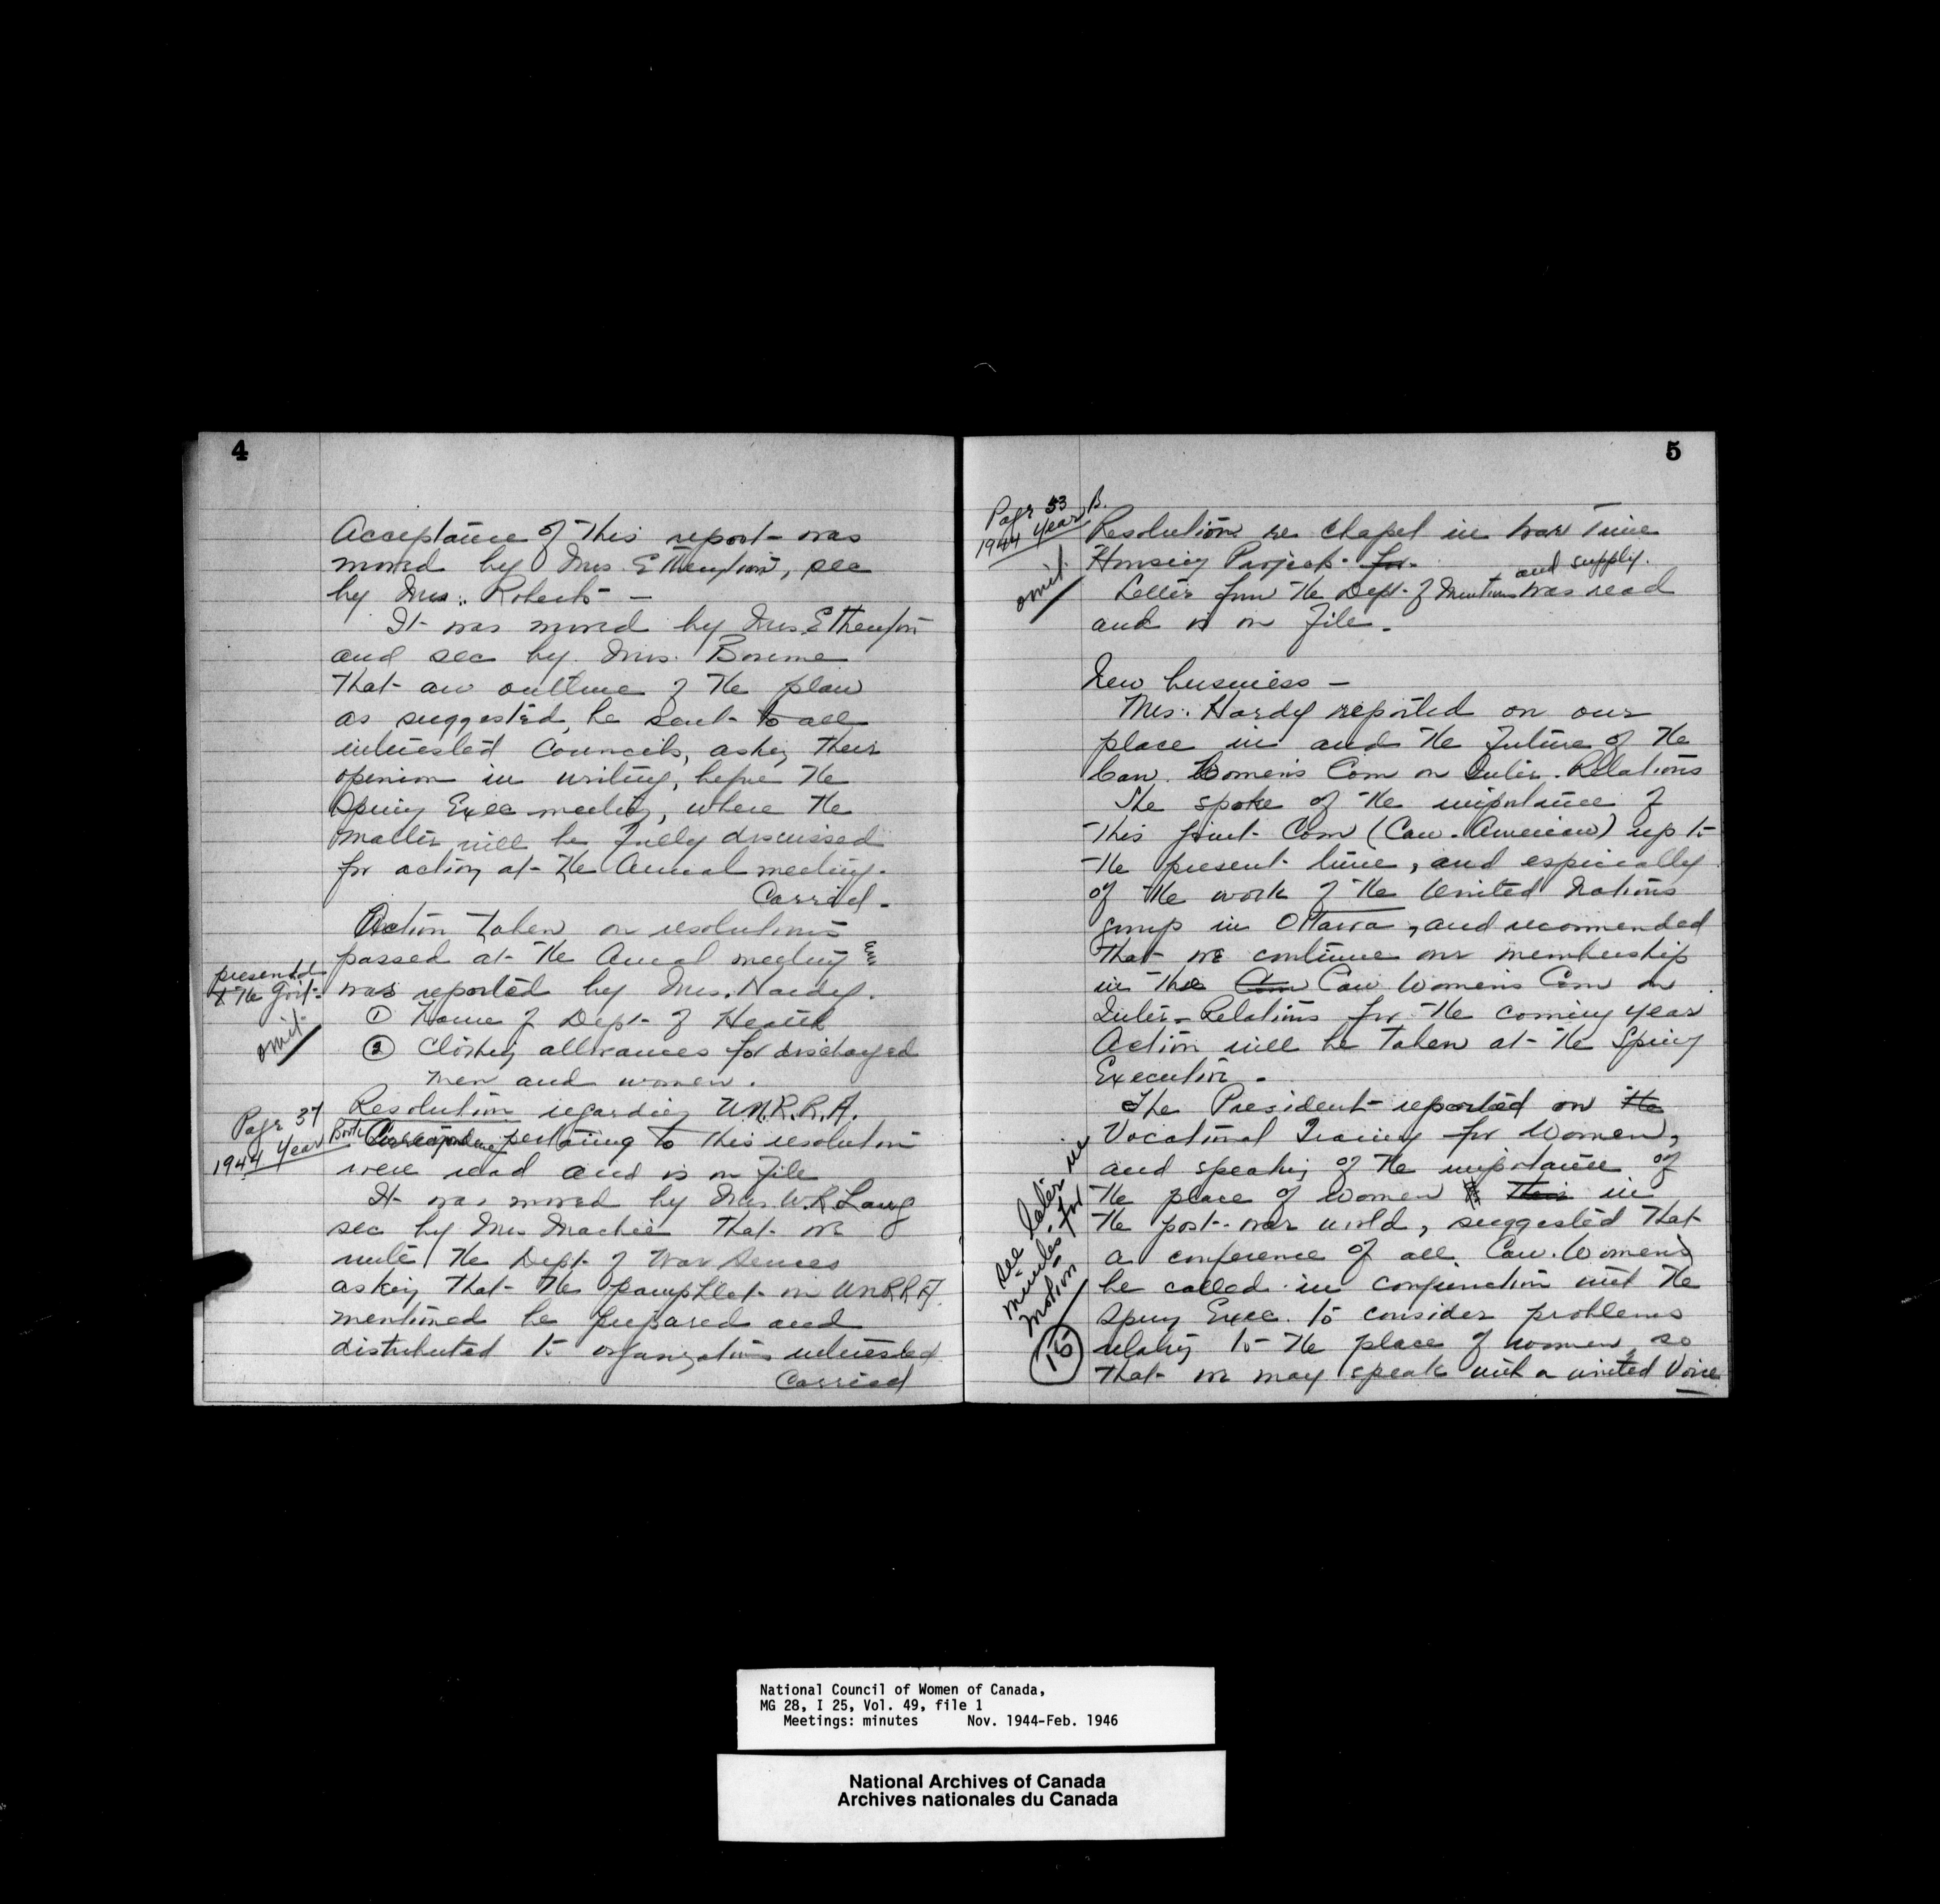 4
Acceptance of this report was
moved by Mrs. Etherington, sec
by Mrs. Roberts —
It was moved by Mrs. Etherington
and sec by Mrs. Bourne
that an outline of the plan
as suggested, be sent to all
interested Councils, asking their
opinion in writing, before the
Spring Exec meeting, where the
matter will be fully discussed
for action at the Annual meeting.
Carried.
Action taken on resolutions
passed at the Annual meeting
presented
to the Gov't.
omit
was reported by Mrs. Hardy.
① Name of Dept. of Health
② Clothing allowances for discharged
men and women.
Page 37
1944 Year Book
Resolution regarding U.N.R.R.A.
pertaining to this resolution
were read and is on file
It was moved by Mrs. W.R. Lang
sec by Mrs Mackie that we
write the Dept. of War Services
asking that the pamphlet on UNRRA
mentioned be prepared and
distributed to organizations interested
Carried
5
Page 53
1944 Year B.
omit
Resolution re Chapel in War Time
Housing Project. for
Letter from the Dept. of Munitions and supply. was read
and is on file.
New business —
Mrs. Hardy reported on our
place in and the future of the
Can. Women's Com on Inter. Relations
She spoke of the importance of
this joint Com (Can. American) up to
the present time, and espicially
of the work of the United Nations
group in Ottawa, and recommended
that we continue our membership
in the Com Can Women's Com on
Inter. Relations for the coming year
Action will be taken at the Spring
Executive.
The President reported on the
Vocational Training for Women,
and speaking of the importance of
the place of women this in
the post-war world, suggested that
a conference of all Can. Women's
be called in conjunction with the
Spring Exec. to consider problems
relating to the place of women, so
that we may speak with a united Voice
see later in
minutes for
motion
15
National Council of Women of Canada,
MG 28, I 25, Vol. 49, file 1
Meetings: minutes Nov. 1944-Feb. 1946
National Archives of Canada
Archives nationales du Canada